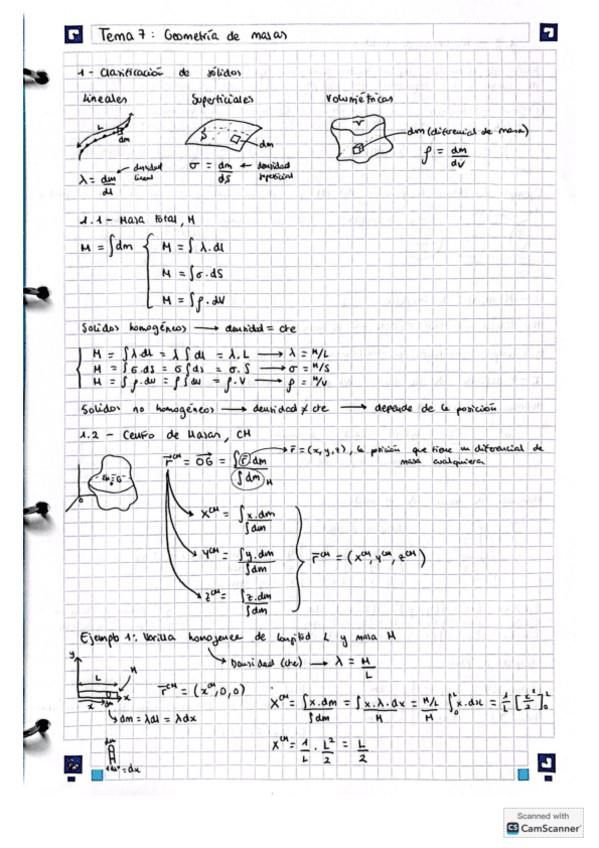 Tema 7: Geometría de masas
1- Clasificación de sólidos
Lineales Superficiales Volumétricas
L dm
dm
V dm (diferencial de masa)
λ = dm/dl ← densidad lineal
σ = dm/dS ← densidad superficial
ρ = dm/dV
1.1- Masa total, M
M = ∫dm { M = ∫λ.dl
M = ∫σ.dS
M = ∫ρ.dV
Solidos homogéneos → densidad = cte
M = ∫λ.dl = λ∫dl = λ.L → λ = M/L
M = ∫σ.dS = σ∫ds = σ.S → σ = M/S
M = ∫ρ.dv = ρ∫dv = ρ.V → ρ = M/V
Solidos no homogéneos → densidad ≠ cte → depende de la posición
1.2 - Centro de Masas, CM
r⃗ᶜᴹ = OG⃗ = ∫r⃗dm / ∫dm M → r̄ = (x,y,z), la posición que tiene un diferencial de
masa cualquiera
Xᶜᴹ = ∫x.dm / ∫dm
Yᶜᴹ = ∫y.dm / ∫dm
r̄ᶜᴹ = (xᶜᴹ, yᶜᴹ, zᶜᴹ)
zᶜᴹ = ∫z.dm / ∫dm
Ejemplo 1: Varilla homogenea de longitud L y masa M
Densidad (cte) → λ = M/L
y L M x x dm
r̄ᶜᴹ = (xᶜᴹ, 0, 0)
Xᶜᴹ = ∫x.dm / ∫dm = ∫x.λ.dx / M = M/L / M ∫₀ᴸ x.dx = 1/L [x²/2]₀ᴸ
dm = λdl = λdx
Xᶜᴹ = 1/L . L²/2 = L/2
dm
= dx
Scanned with
CS CamScanner